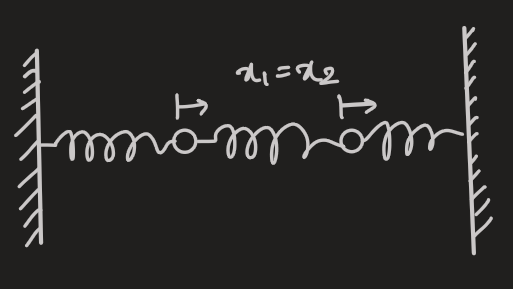 x₁ = x₂